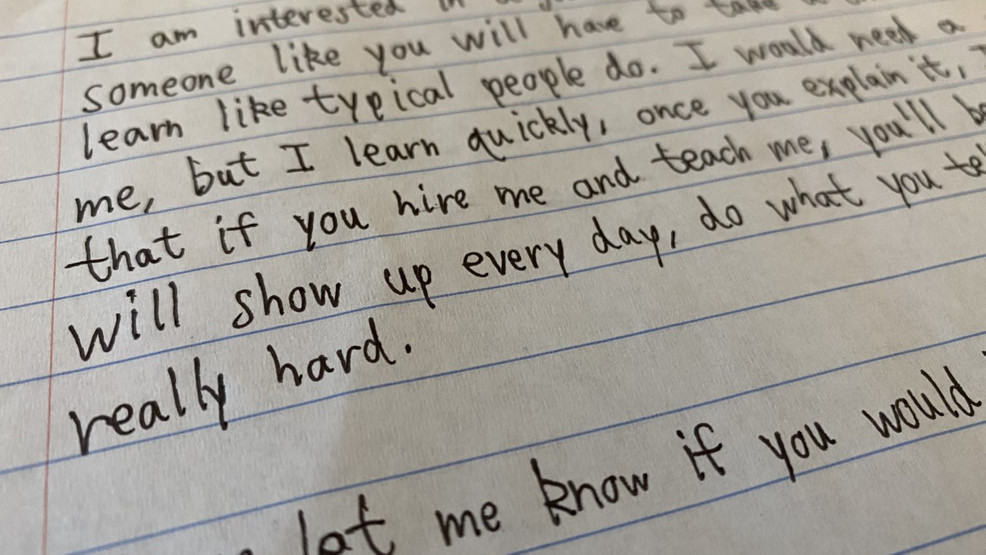 I am interested in a
someone like you will have to take a
learn like typical people do. I would need a
me, but I learn quickly, once you explain it, I
that if you hire me and teach me, you'll be
will show up every day, do what you
really hard.
let me know if you would